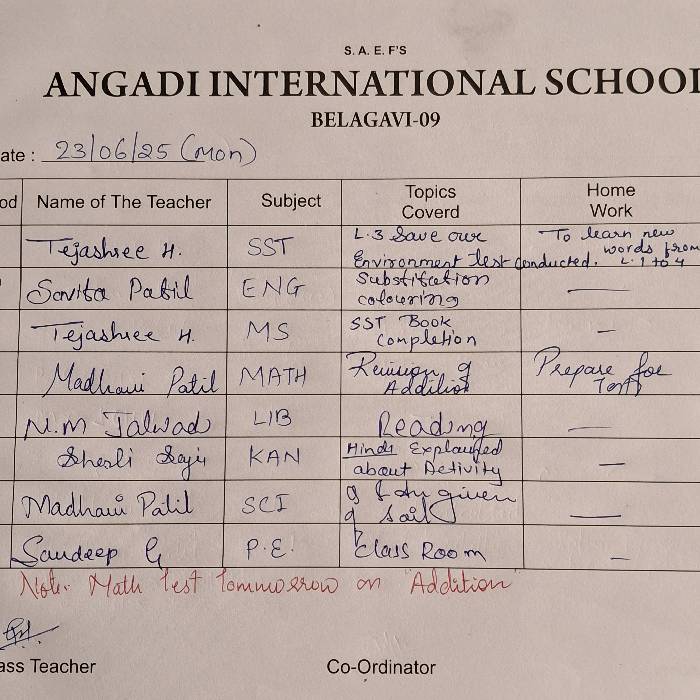 S. A. E. F'S
ANGADI INTERNATIONAL SCHOOL
BELAGAVI-09
ate : 23/06/25 (Mon)
od Name of The Teacher Subject Topics Coverd Home Work
Tejashree H. SST L.3 Save our Environment Test conducted. To learn new words from L. 1 to 4
Savita Patil ENG Substitution colouring —
Tejashree H. MS SST Book Completion —
Madhavi Patil MATH Revision of Addition Prepare for Test
N.M Jalwad LIB Reading —
Sherli Saji KAN Hindi Explained about Activity —
Madhavi Patil SCI given of Soil —
Sandeep G P.E. Class Room —
Note. Math Test Tommorrow on "Addition"
ass Teacher Co-Ordinator